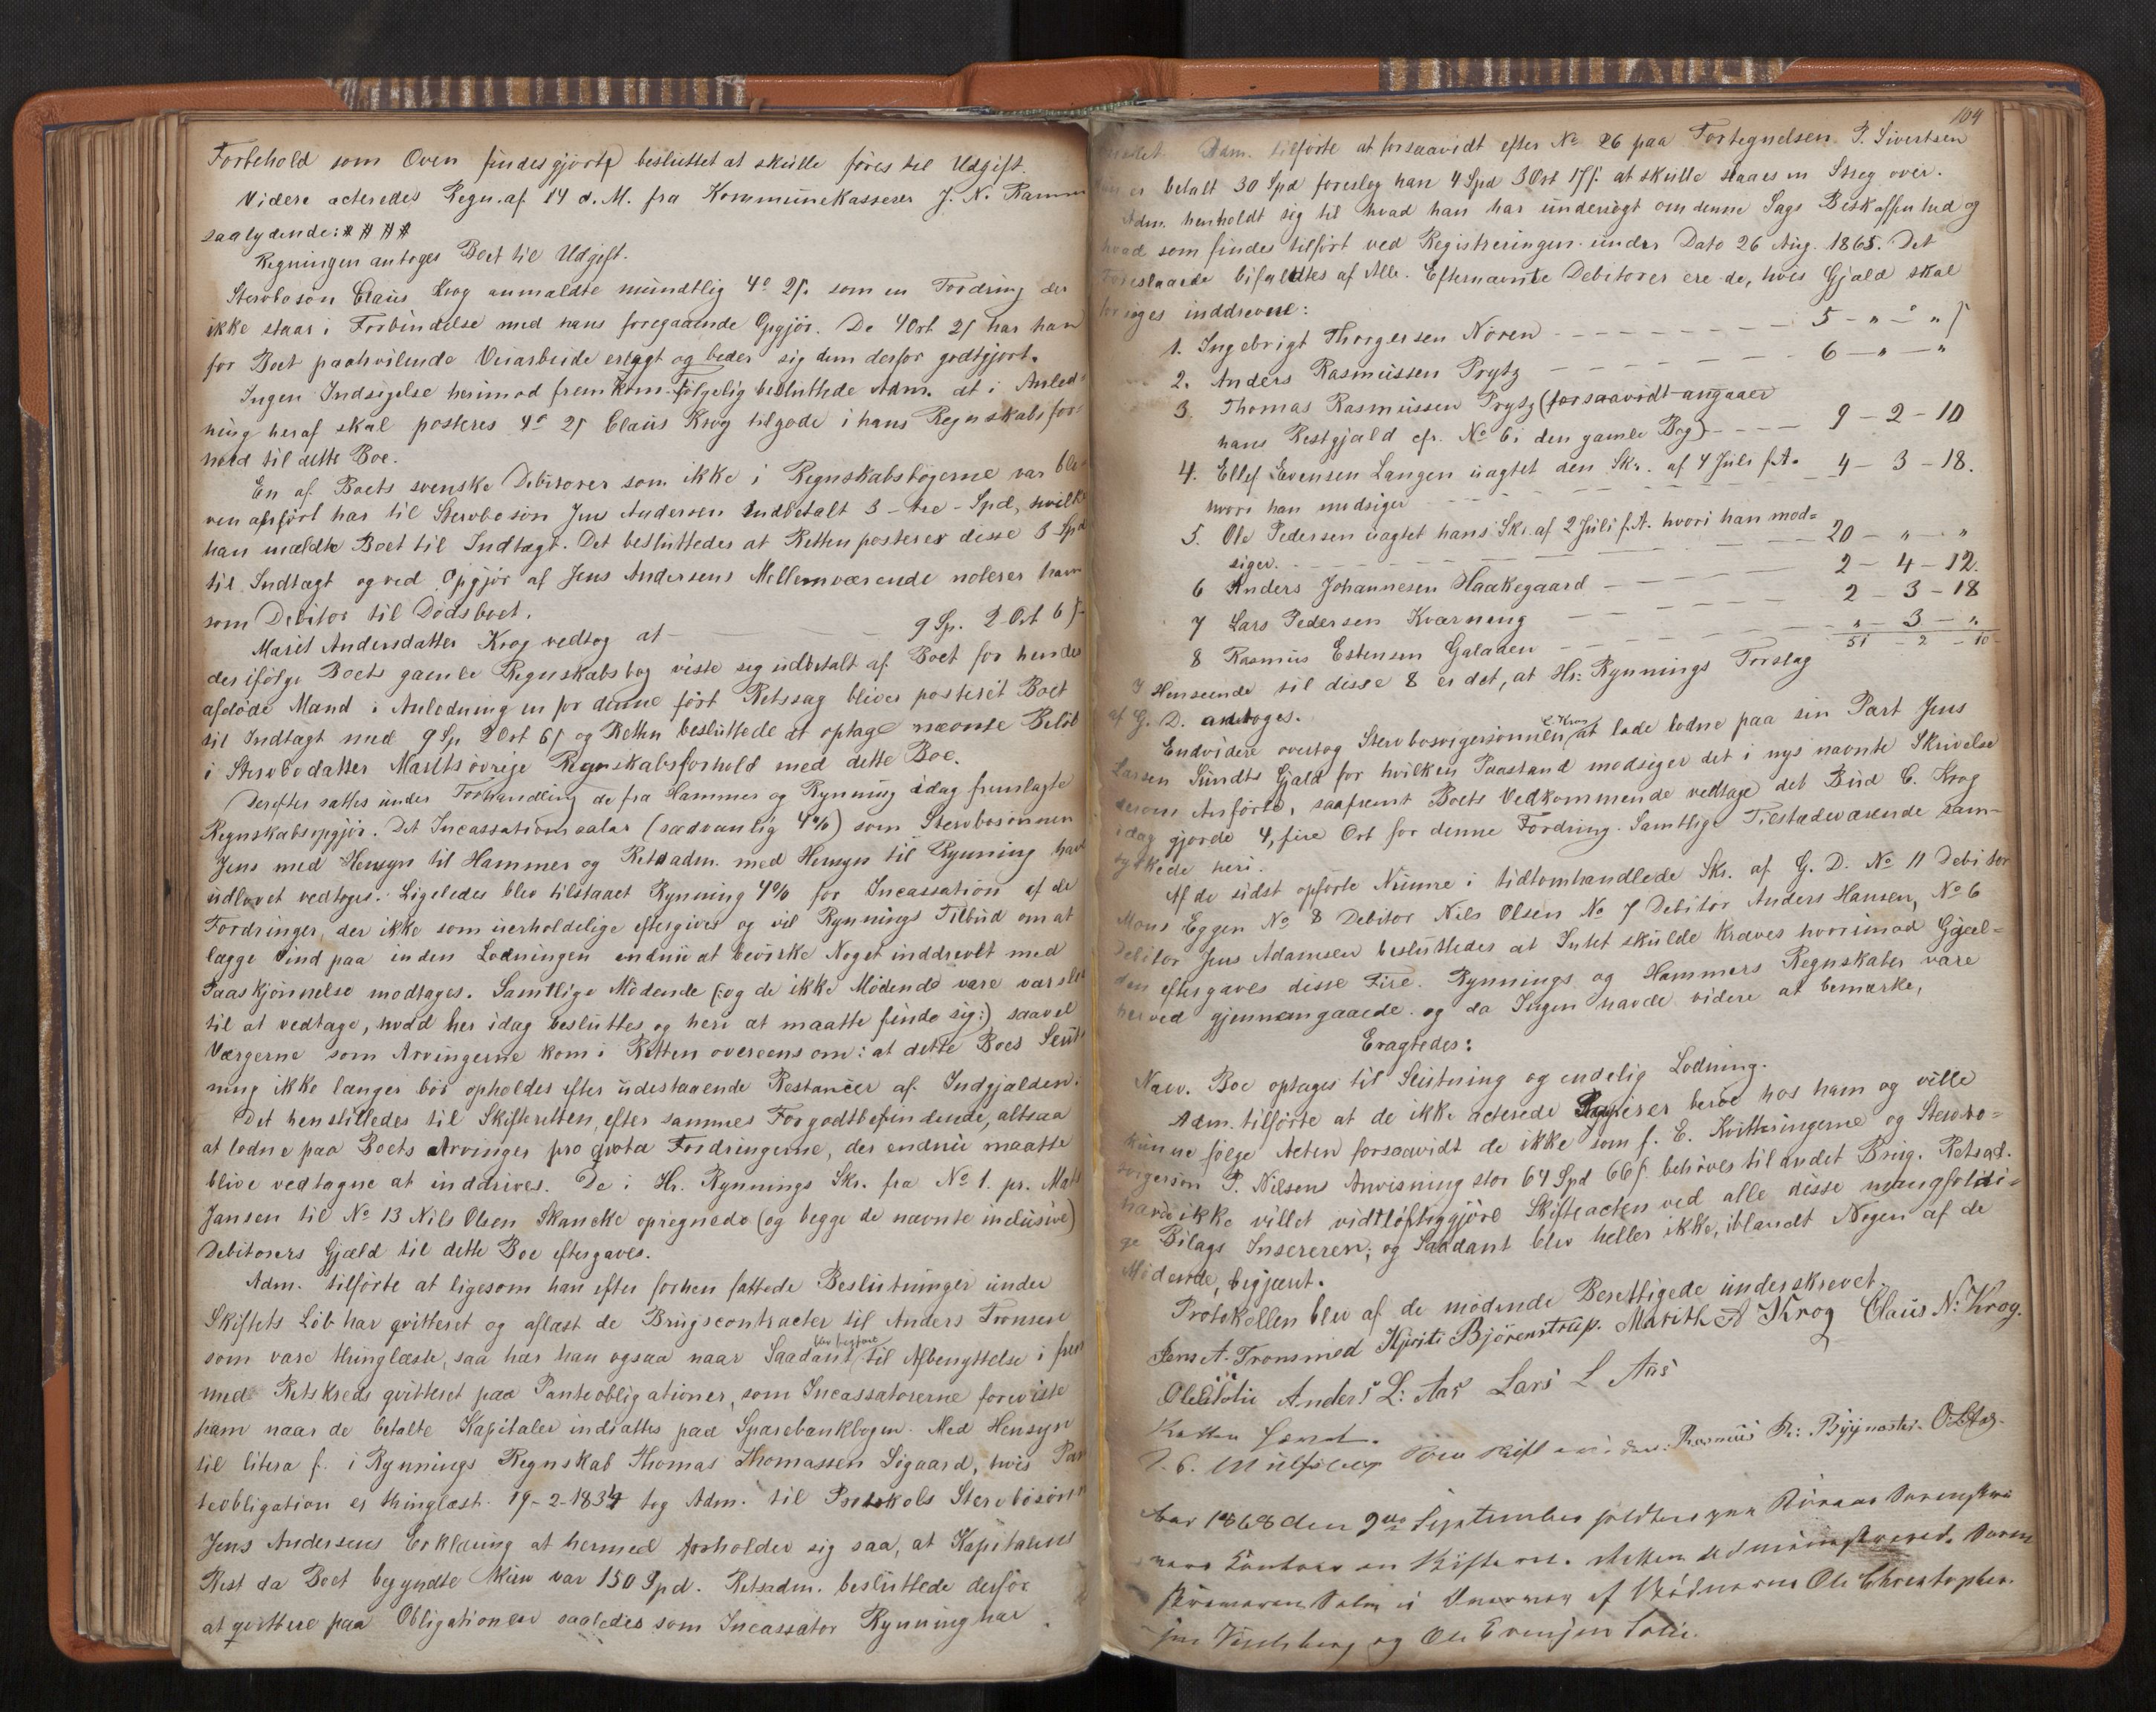 Forbehold som Oven findes gjort) besluttet at skulle føres til Udgift.
Videre acteredes Regn. af 14 d. M. fra Kommunekasserer J. N. Ramm
saalydende: # # # #
Regningen antoges Boet til Udgift.
Stervbosøn Claus Krog anmældte mundtlig 4o 2s. som en Fordring der
ikke staar i Forbindelse med hans foregaaende Opgjør. De 4 Ort 2s har han
for Boet paahvilende Veiarbeide erlagt og beder sig dem derfor godtgjort.
Ingen Indsigelse herimod fremkom. Følgelig besluttede Adm. at i Anled
ning heraf skal posteres 4o 2s Claus Krog tilgode i hans Regnskabsfor
hold til dette Boe.
En af Boets svenske Debitorer som ikke i Regnskabsbøgerne var ble
ven anført har til Stervbosøn Jens Andersen indbetalt 3 - tre - Spd, hvilke
han mældte Boet til Indtægt. Det besluttedes at Retten posterer disse 3 Spd
til Indtægt og ved Opgjør af Jens Andersens Mellemværende noterer ham
som Debitor til Dødsboet.
Marit Andersdatter Krog vedtog at — 9 Sp. 2 Ort 6 s
der ifølge Boets gamle Regnskabsbog viste sig udbetalt af Boet for hendes
afdøde Mand i Anledning en for denne ført Retssag bliver posteret Boet
til Indtægt med 9 Sp 2 Ort 6s og Retten besluttede at optage nævnte Beløb
i Stervbodatter Marits øvrige Regnskabsforhold med dette Boe.
Derefter sattes under Forhandling de fra Hammer og Rynning idag fremlagte
Regnskabsopgjør. Det Incassationssalar (sædvanlig 4%) som Stervbosønnen
Jens med Hensyn til Hammer og Retsadm. med Hensyn til Rynning havde
udlovet vedtoges. Ligeledes blev tilstaaet Rynning 4% for Incassation af de
Fordringer, der ikke som uerholdelige eftergives og vil Rynnings Tilbud om at
lægge Vind paa inden Lodningen endnu at bevirke Noget inddrevet med
Paaskjønnelse modtages. Samtlige Mødende (: og de ikke Mødende vare varslet
til at vedtage, hvad her idag besluttes og heri at maatte finde sig :) saavel
Værgerne som Arvingerne kom i Retten overeens om: at dette Boes Slut
ning ikke længer bør opholdes efter udestaaende Restancer af Indgjælden.
Det henstilledes til Skifteretten, efter sammes Forgodtbefindende, altsaa
at lodne paa Boets Arvinger pro qvota Fordringerne, der endnu maatte
blive vedtagne at inddrives. De i Hr. Rynnings Skr. fra No 1. pr. Mats
Jansen til No 13 Nils Olsen Skancke opregnede (og begge de nævnte inclusive)
Debitorers Gjæld til dette Boe eftergaves.
Adm. tilførte at ligesom han efter forhen fattede Beslutninger under
Skiftets Løb har qvitteret og aflæst de Brugscontracter til Anders Tronsen
som vare thinglæste, saa har han ogsaa naar Saadant blev begjært til Afbenyttelse i frem
med Retskreds qvitteret paa Panteobligationer, som Incassatorerne foreviste
ham naar de betalte Kapitaler indsattes paa Sparebankbogen. Med Hensyn
til litera f. i Rynnings Regnskab Thomas Thomassen Søgaard, hvis Pan
teobligation er thinglæst 19-2-1834 tog Adm. til Protokols Stervbosøn
Jens Andersens Erklæring at hermed forholder sig saa, at Kapitalens
Rest da Boet begyndte kun var 150 Spd. Retsadm. besluttede derfor
at qvittere paa Obligationen saaledes som Incassator Rynning har
104
Adm. tilførte at forsaavidt efter No 26 paa Fortegnelsen P. Sivertsen
er betalt 30 Spd foreslog han 4 Spd 3 Ort 17s. at skulle slaaes en Streg over.
Adm. henholdt sig til hvad han har undersøgt om denne Sags Beskaffenhed og
hvad som findes tilført ved Registreringen under Dato 26 Aug. 1865. Det
Foreslaaede bifaldtes af Alle. Efternævnte Debitorer ere de, hvis Gjæld skal
søges inddreven:
1. Ingebrigt Thorgersen Noren — 5 - " - " s
2. Anders Rasmussen Prytz — 6 - " - "
3. Thomas Rasmussen Prytz (forsaavidt angaaer
hans Restgjæld cfr. No 6 i den gamle Bog) — 9 - 2 - 10
4. Ellef Evensen Langen uagtet den Skr. af 4 Juli f. A. 4 - 3 - 18.
hvori han modsiger —
5. Ole Pedersen uagtet hans Skr. af 2 Juli f. A. hvori han mod=
siger. — 20 - " - "
6 Anders Johannesen Haakegaard — 2 - 4 - 12.
7 Lars Pedersen Kværneng — 2 - 3 - 18
8 Rasmus Estensen Galaaen — " - 3 - "
51 - 2 - 10
I Henseende til disse 8 er det, at Hr: Rynnings Forslag
af G. D. antoges.
Endvidere overtog Stervbosvigersønnen C. Krog at lade lodne paa sin Part Jens
Larsen Sundts Gjæld for hvilken Paastand modsiger det i nys nævnte Skrivelse
derom Anførte, saafremt Boets Vedkommende vedtage det Bud C. Krog
idag gjorde 4, fire Ort for denne Fordring. Samtlige Tilstedeværende sam-
tykkede heri.
Af de sidst opførte Numre i tidtomhandlede Skr. af G. D. No 11 Debitor
Mons Eggen No 8 Debitor Nils Olsen No 7 Debitor Anders Hansen, No 6
Debitor Jens Adamsen besluttedes at Intet skulde kræves hvorimod Gjæl=
den eftergaves disse Fire. Rynnings og Hammers Regnskaber vare
herved gjennemgaaede og da Ingen havde videre at bemærke,
Eragtedes:
Næv. Boe optages til Slutning og endelig Lodning.
Adm. tilførte at de ikke acterede Papirer beroe hos ham og ville
kunne følge Acten forsaavidt de ikke som f. E. Kvitteringerne og Stervbo=
svigersøn P. Nilsens Anvisning stor 64 Spd 66s. behøves til andet Brug. Retsad.
havde ikke villet vidtløftiggjøre Skifteacten ved alle disse mangfoldi=
ge Bilags Insereren; og Saadant blev heller ikke, iblandt Nogen af de
Mødende, begjæret.
Protokollen blev af de mødende Berettigede underskrevet.
Jens A. Tronsmed Kjersti Bjørnstrup. Marith A Krog Claus N: Krog.
Anders L: Aas Lars L Aas
Retten hævet.
Rasmus
Aar 1868 den 9de September holdtes paa Røraas Sorenskri
vers Contoir en Skifteret. Retten administreret Soren
skriveren selv i Overvær af Vidnerne Ole Christopher
sen og Ole Evensen Tolie.